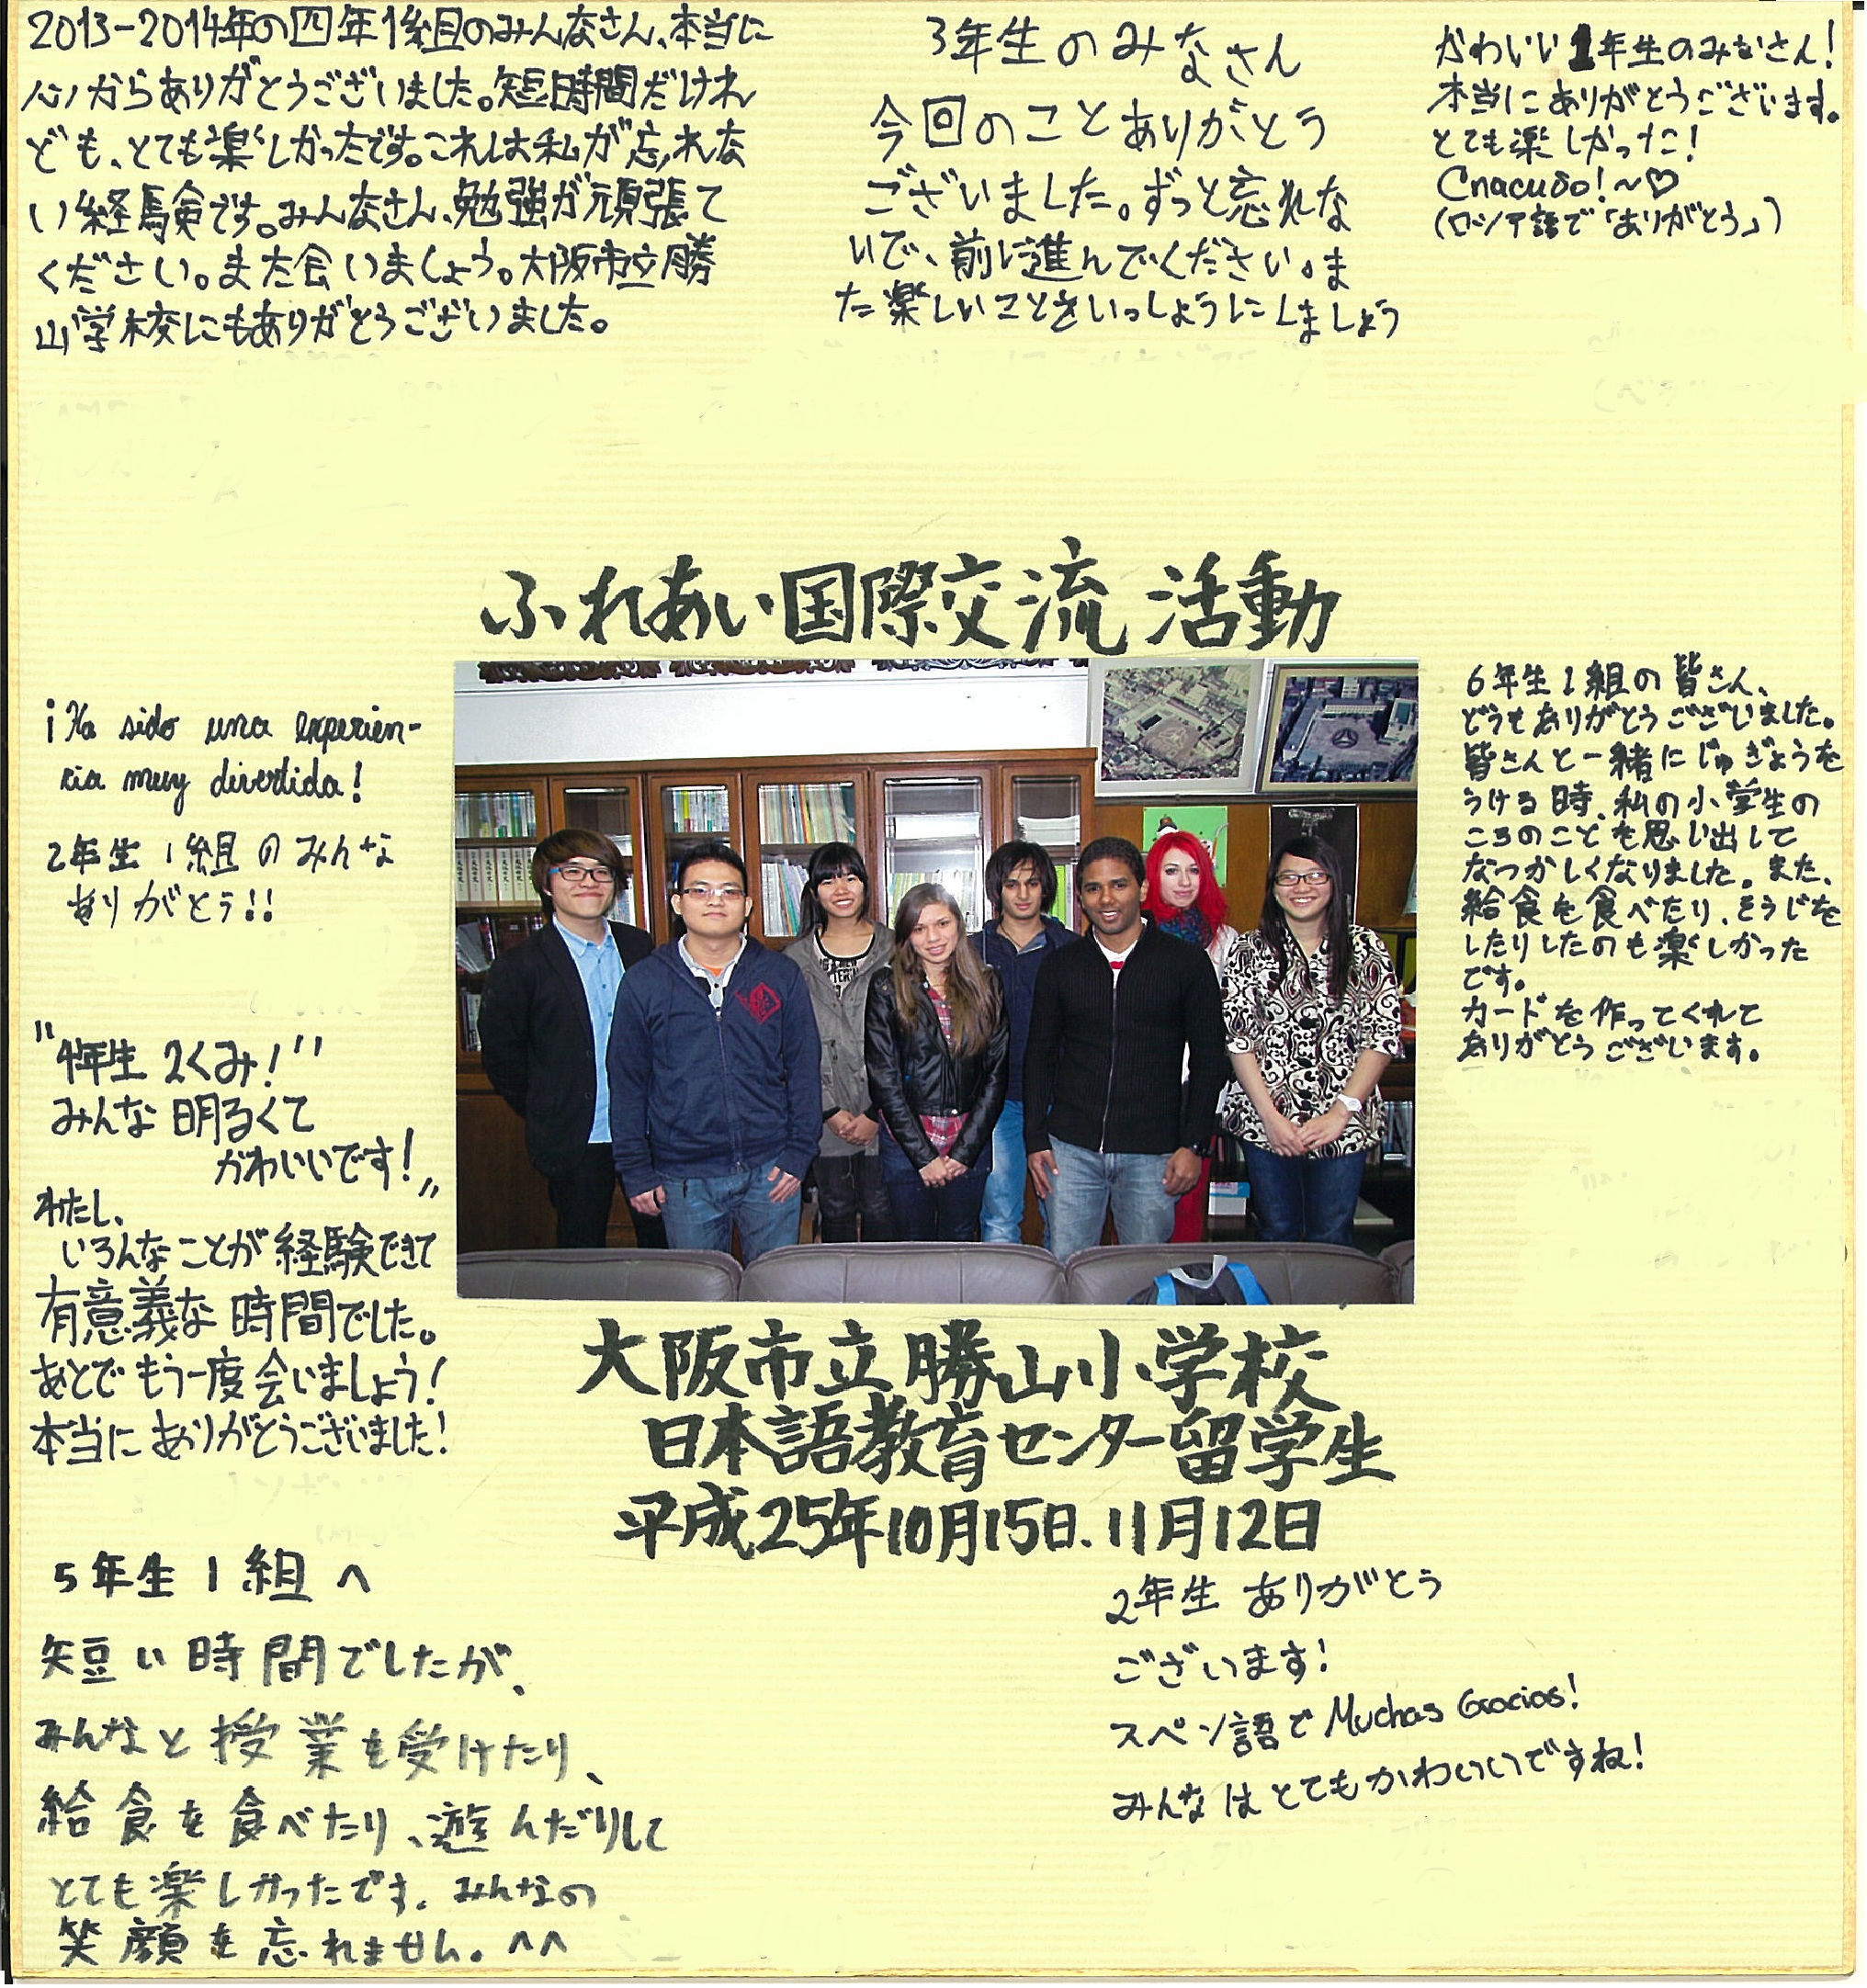 2013-2014年の四年1組のみんなさん、本当に
心からありがとうございました。短時間だけれ
ども、とても楽しかったです。これは私が忘れな
い経験です。みんなさん、勉強が頑張て
ください。また会いましょう。大阪市立勝
山学校にもありがとうございました。
3年生のみなさん
今回のことありがとう
ございました。ずっと忘れな
いで、前に進んでください。ま
た楽しいことをいっしょうにしましょう
かわいい1年生のみなさん!
本当にありがとうございます。
とても楽しかった!
Спасибо!~♡
(ロシア語で「ありがとう」)
ふれあい国際交流活動
¡Ha sido una experien-
cia muy divertida!
2年生1組のみんな
ありがとう!!
"4年生2くみ!"
みんな明るくて
かわいいです!"
わたし、
いろんなことが経験できて
有意義な時間でした。
あとでもう一度会いましょう!
本当にありがとうございました!
6年生1組の皆さん、
どうもありがとうございました。
皆さんと一緒にじゅぎょうを
うける時、私の小学生の
ころのことを思い出して
なつかしくなりました。また、
給食を食べたり、そうじを
したりしたのも楽しかった
です。
カードを作ってくれて
ありがとうございます。
大阪市立勝山小学校
日本語教育センター留学生
平成25年10月15日.11月12日
5年生1組へ
短い時間でしたが、
みんなと授業を受けたり、
給食を食べたり、遊んだりして
とても楽しかったです。みんなの
笑顔を忘れません。^^
2年生ありがとう
ございます!
スペン語でMuchas Gracias!
みんなはとてもかわいいですね!